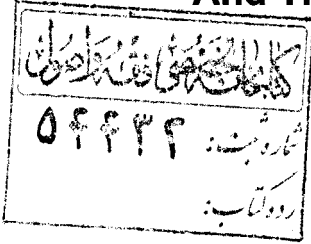 And Th
کتابخانه تخصصی فقه و اصول
شماره ثبت: ۵۴۴۳۲
رده کتاب: